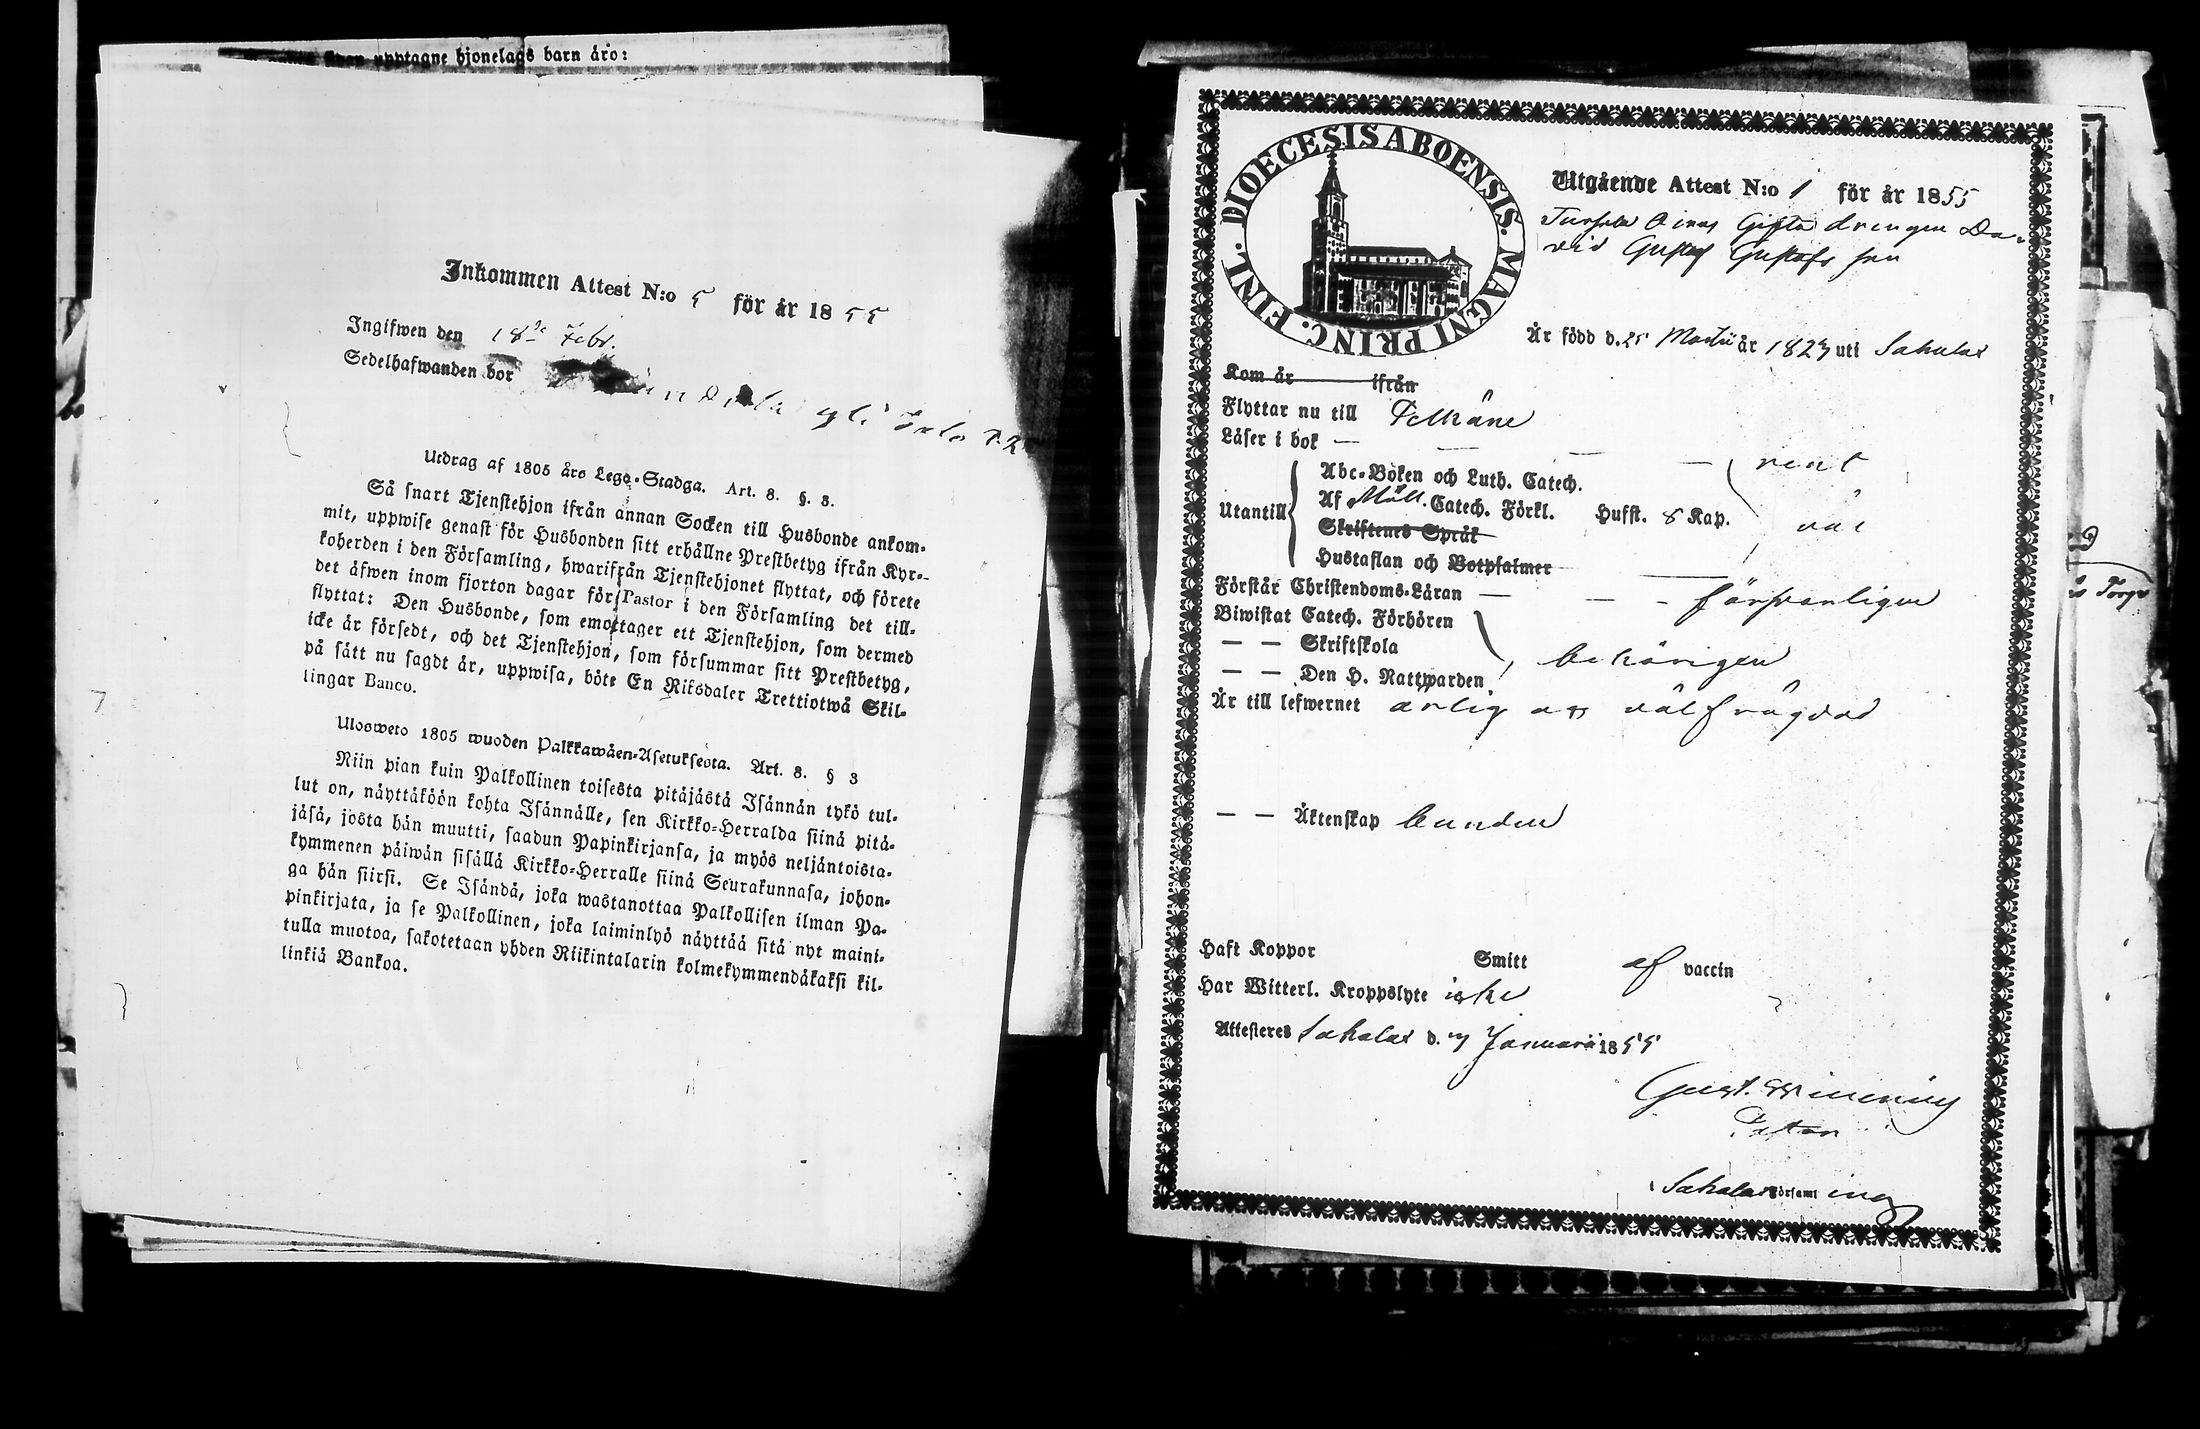 upptagne hjonelags barn äro:
Inkommen Attest N:o 5 för år 1855
Ingifwen den 18de Febr.
Sedelhafwanden bor
Utdrag af 1805 års Lego-Stadga. Art. 8. §. 3.
Så snart Tjenstehjon ifrån annan Socken till Husbonde ankom-
mit, uppwise genast för Husbonden sitt erhållne Prestbetyg ifrån Kyr-
koherden i den Församling, hwarifrån Tjenstehjonet flyttat, och förete
det äfwen inom fjorton dagar för Pastor i den Församling det till-
flyttat: Den Husbonde, som emottager ett Tjenstehjon, som dermed
icke är försedt, och det Tjenstehjon, som försummar sitt Prestbetyg,
på sätt nu sagdt är, uppwisa, böte En Riksdaler Trettiotwå Skil-
lingar Banco.
Ulosweto 1805 wuoden Palkkawäen-Asetuksesta. Art. 8. § 3
Niin pian kuin Palkollinen toisesta pitäjästä Isännän tykö tul-
lut on, näyttäköön kohta Isännälle, sen Kirkko-Herralda siinä pitä-
jäsä, josta hän muutti, saadun Papinkirjansa, ja myös neljäntoista-
kymmenen päiwän sisällä Kirkko-Herralle siinä Seurakunnasa, johon-
ga hän siirsi. Se Isändä, joka wastanottaa Palkollisen ilman Pa-
pinkirjata, ja se Palkollinen, joka laiminlyö näyttää sitä nyt maini-
tulla muotoa, sakotetaan yhden Riikintalarin kolmekymmendäkaksi kil-
linkiä Bankoa.
DIOECESIS ABOENSIS. MAGNI PRINC. FINL.
Utgående Attest N:o 1 för år 1855
Gifta drengen Da-
vid Gustaf Gustafs son
Är född d. 25 Martii år 1823 uti Sahalax
Kom år ifrån
Flyttar nu till Pelkäne
Läser i bok — — — — rent
Abc-Boken och Luth. Catech.
Utantill Af Möll. Catech. Förkl. Husst. 8 Kap. väl
Skriftenes Språk
Hustaflan och Botpsalmer
Förstår Christendoms-Läran — — - försvarligen
Biwistat Catech. Förhören
— — Skriftskola
— — Den H. Nattwarden behörigen
Är till lefwernet ärlig och välfrägdad
— — Äktenskap bunden
Haft Koppor Smitt af vaccin
Har Witterl. Kroppslyte icke
Attesteres Sahalax d. 7 Januarii 1855
Gust. Winning
Pastor
i Sahalax Församl ing